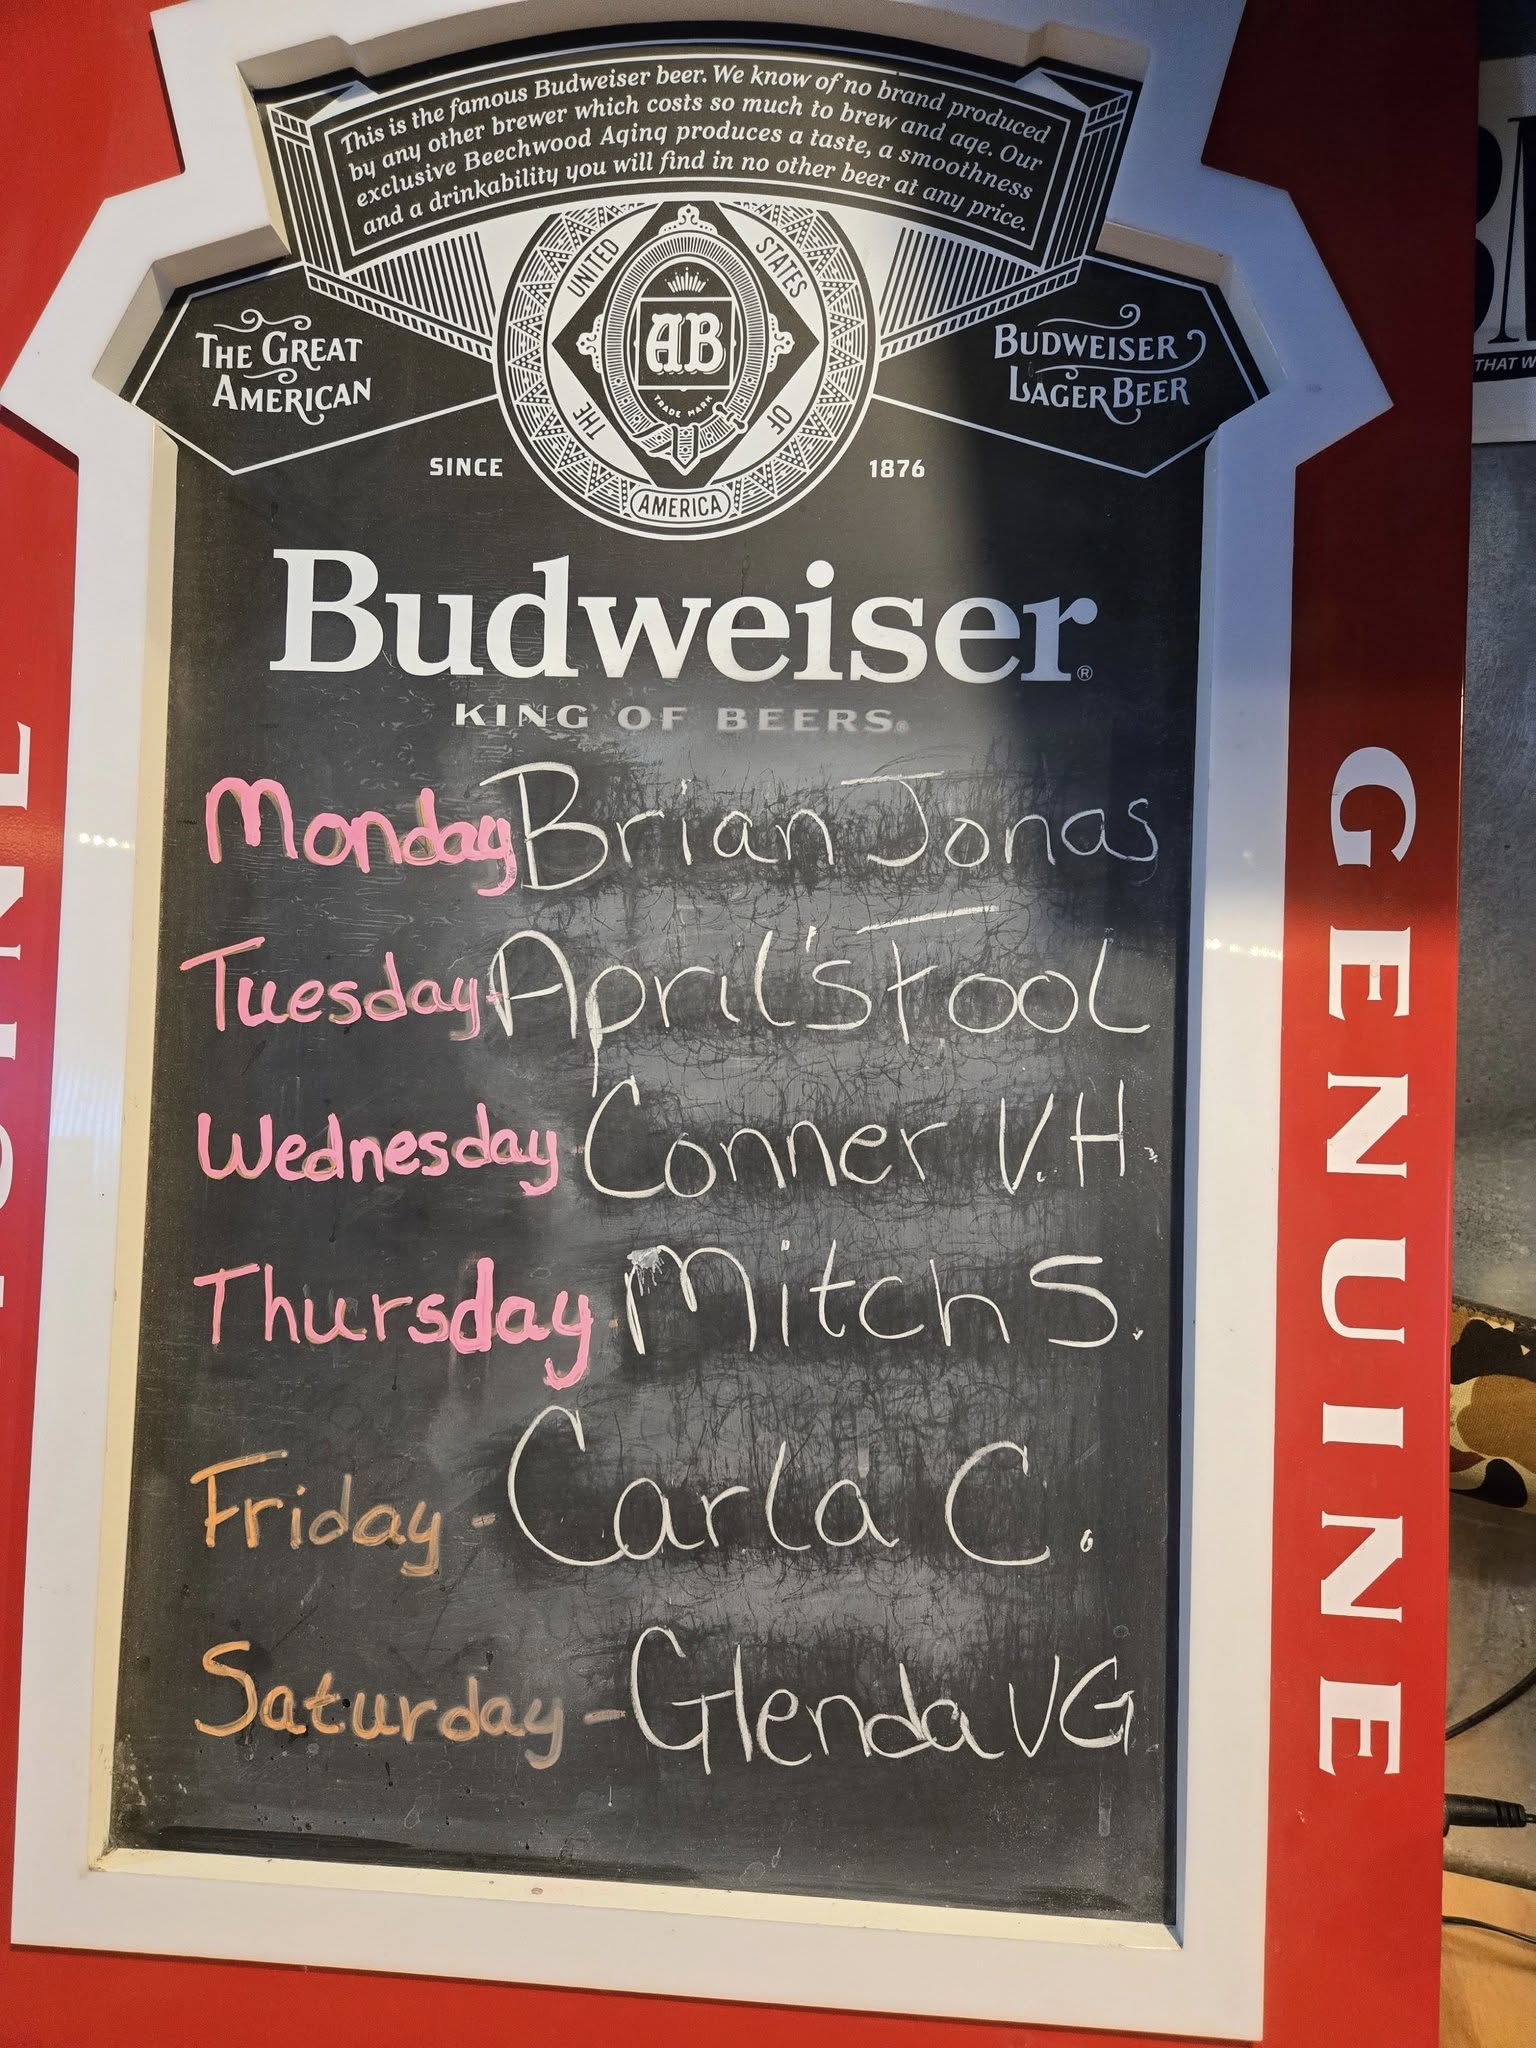 This is the famous Budweiser beer. We know of no brand produced
by any other brewer which costs so much to brew and age. Our
exclusive Beechwood Aging produces a taste, a smoothness
and a drinkability you will find in no other beer at any price.
THE GREAT
AMERICAN
UNITED
STATES
OF
THE
AMERICA
AB
TRADE MARK
BUDWEISER
LAGER BEER
SINCE
1876
Budweiser®
KING OF BEERS®
Monday Brian Jonas
Tuesday-April's Fool
Wednesday-Conner V.H.
Thursday-Mitch S.
Friday-Carla C.
Saturday-Glenda VG
GENUINE
THAT